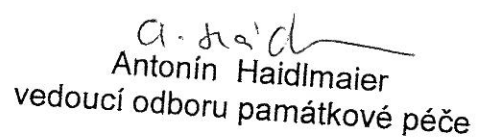 Antonín Haidlmaier
vedoucí odboru památkové péče